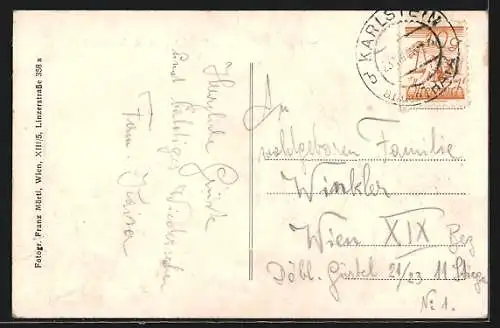 Fotogr. Franz Mörtl, Wien, XIII/5, Linzerstraße 358 a
Herzliche Grüße
und baldiges Wiedersehn
Fam. Kaiser
KARLSTEIN
An
wohlgeboren Familie
Winkler
Wien XIX Bez
Döbl. Gürtel 21/23 11 Stiege
Nr 1.